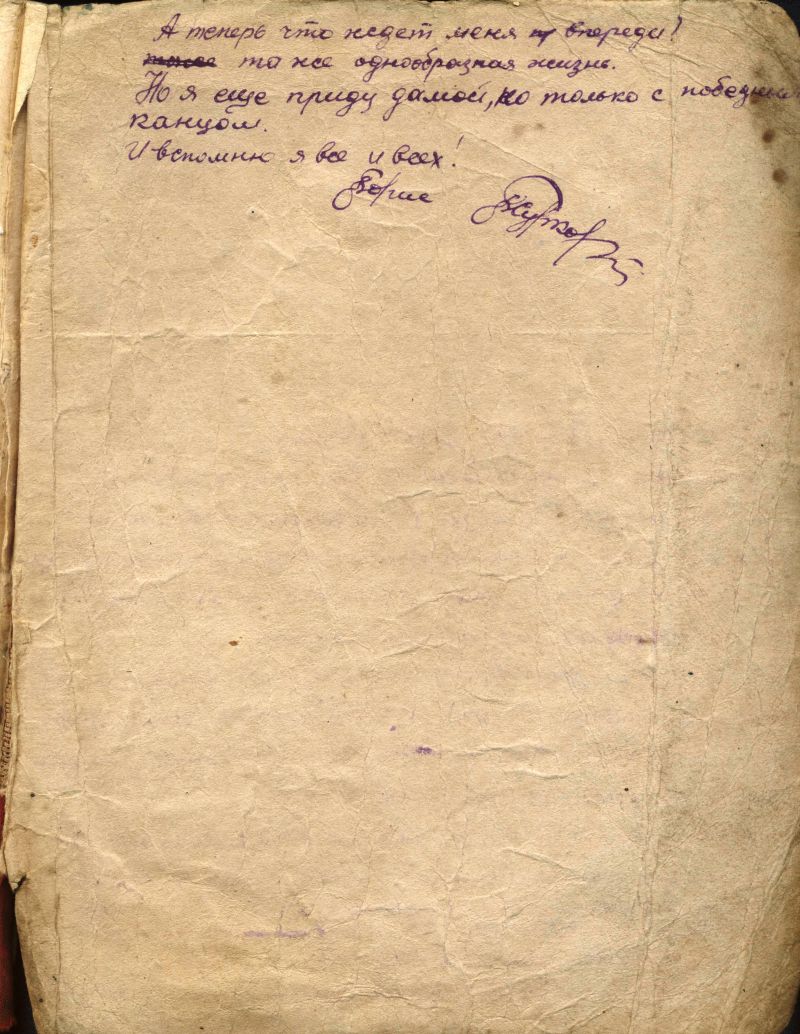 А теперь что ждет меня впереди?
та же однообразная жизнь.
Но я еще приду дамой, но только с победным
канцом.
И вспомню я все и всех!
Борис